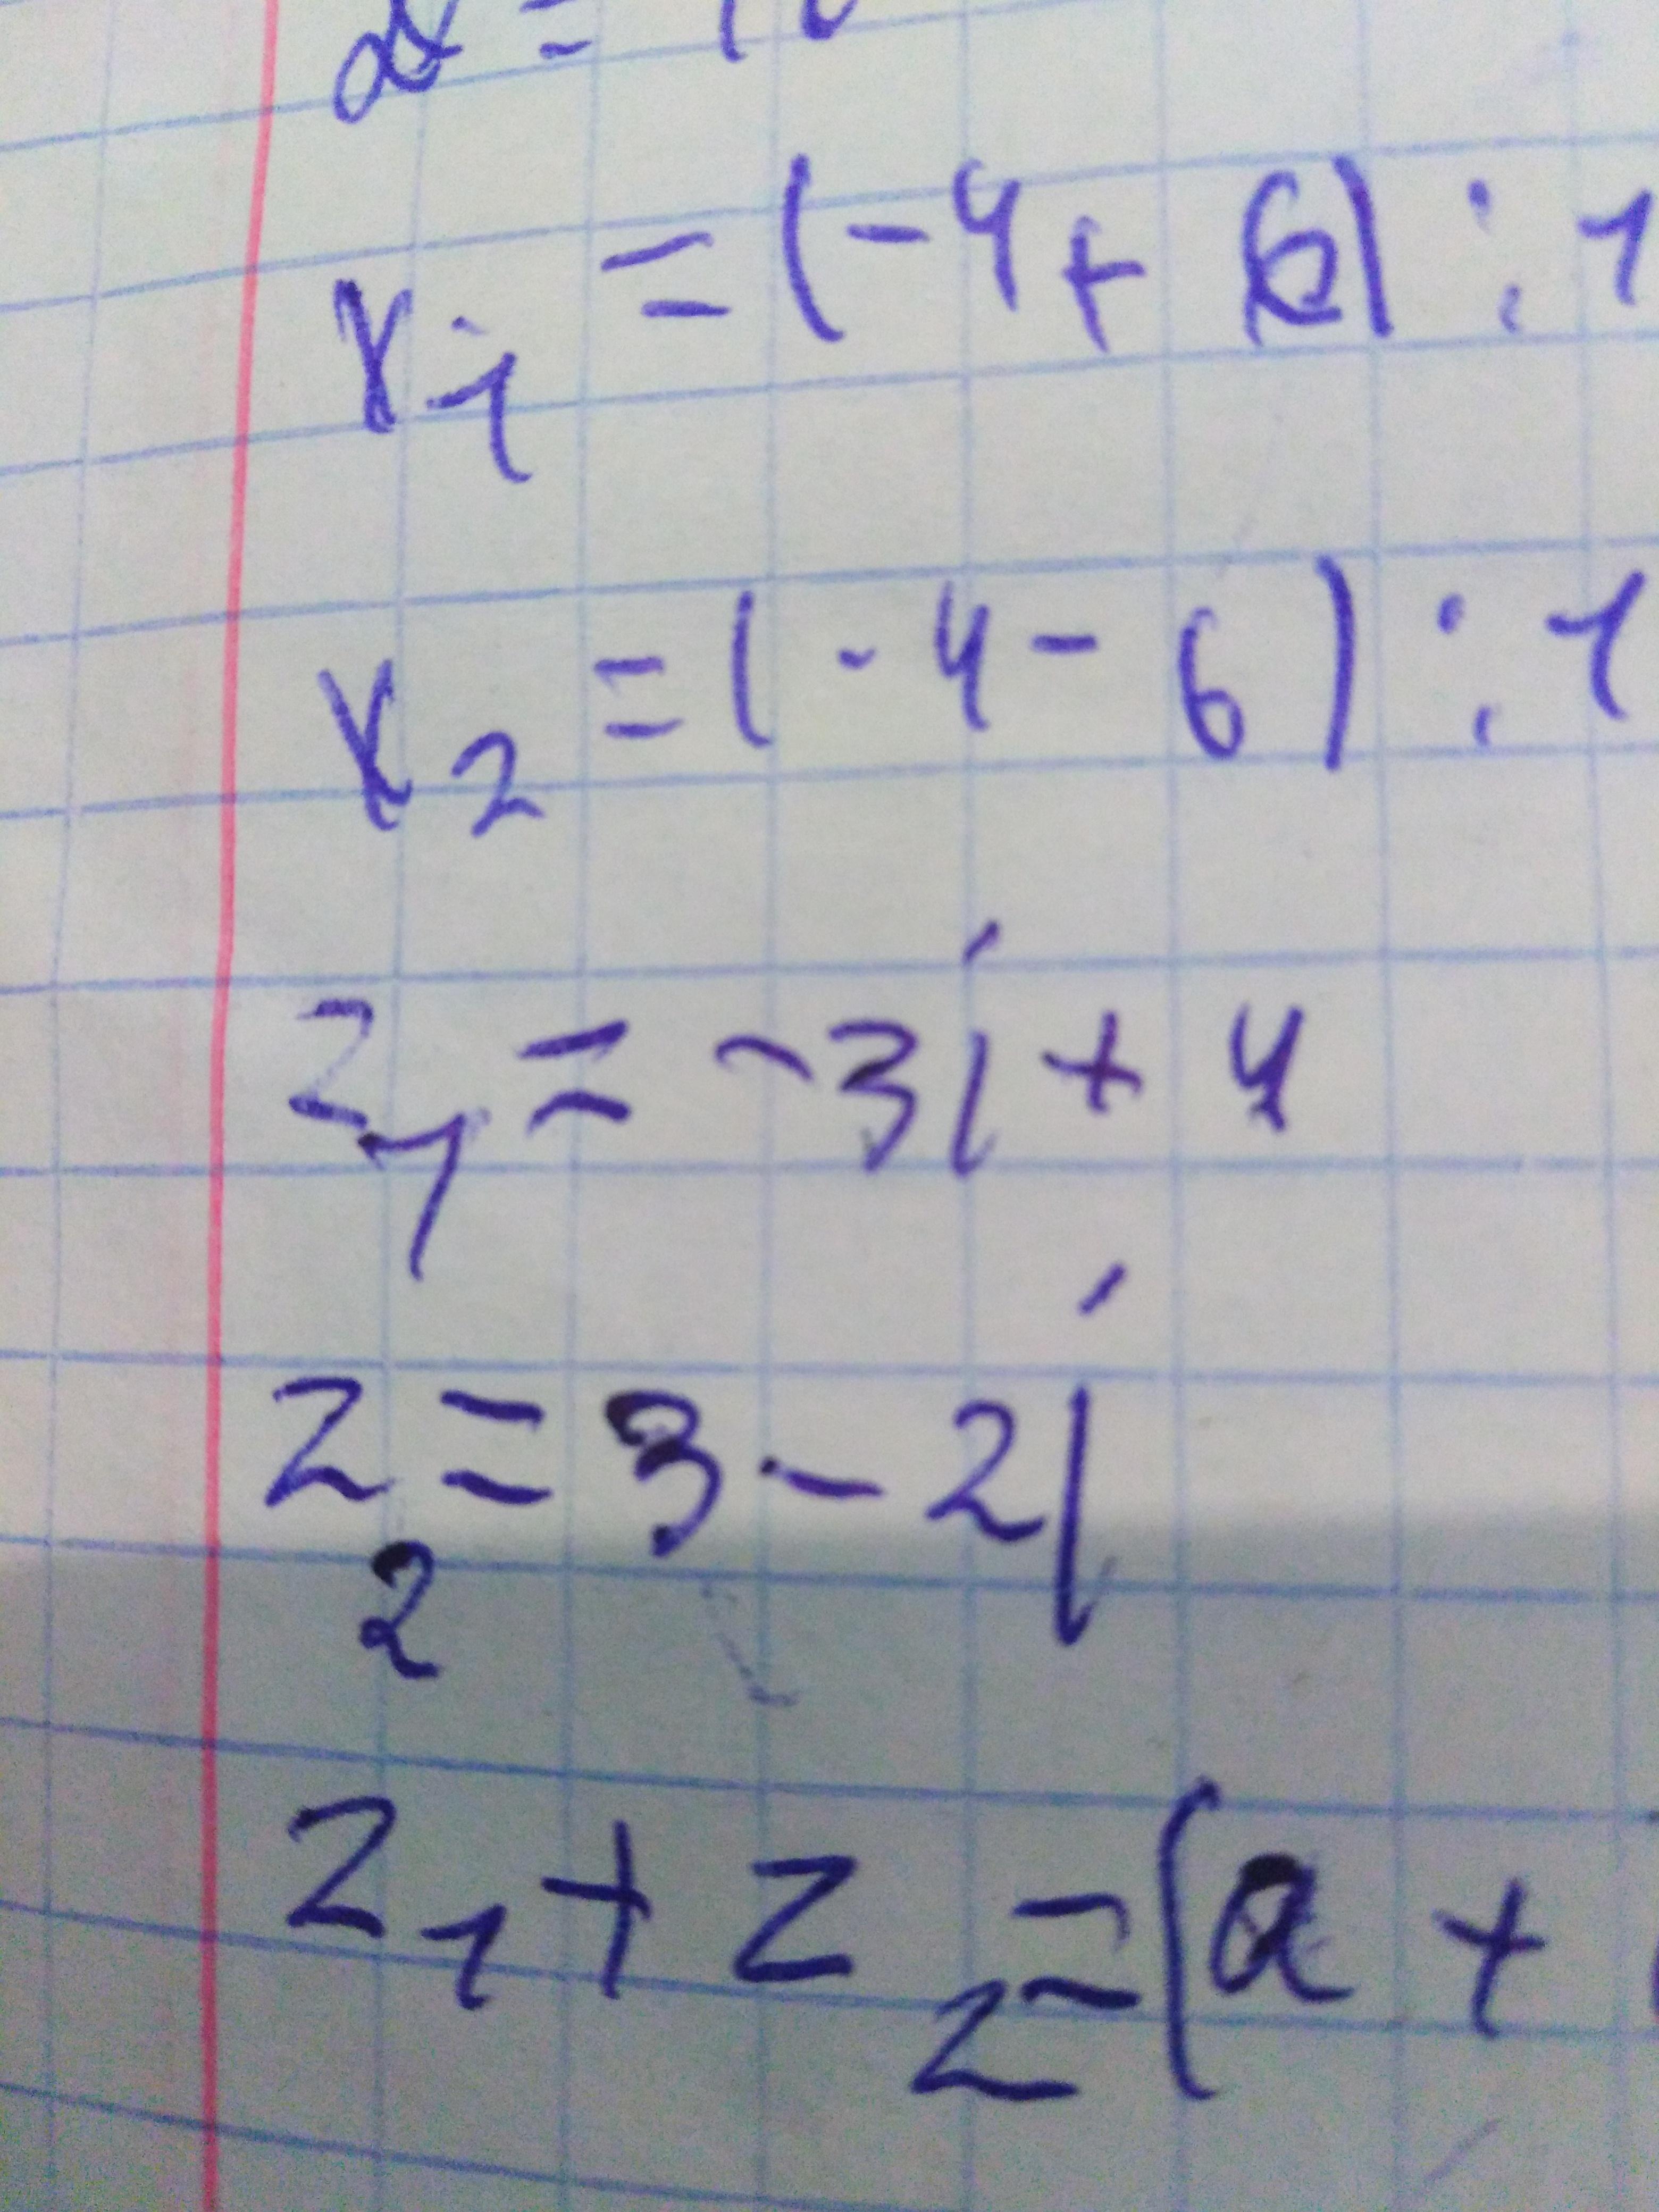 x₁ = (-4 + 6) : 1
x₂ = (-4 - 6) : 1
z₁ = -3i + 4
z₂ = 3 - 2i
z₁ + z₂ = (a +